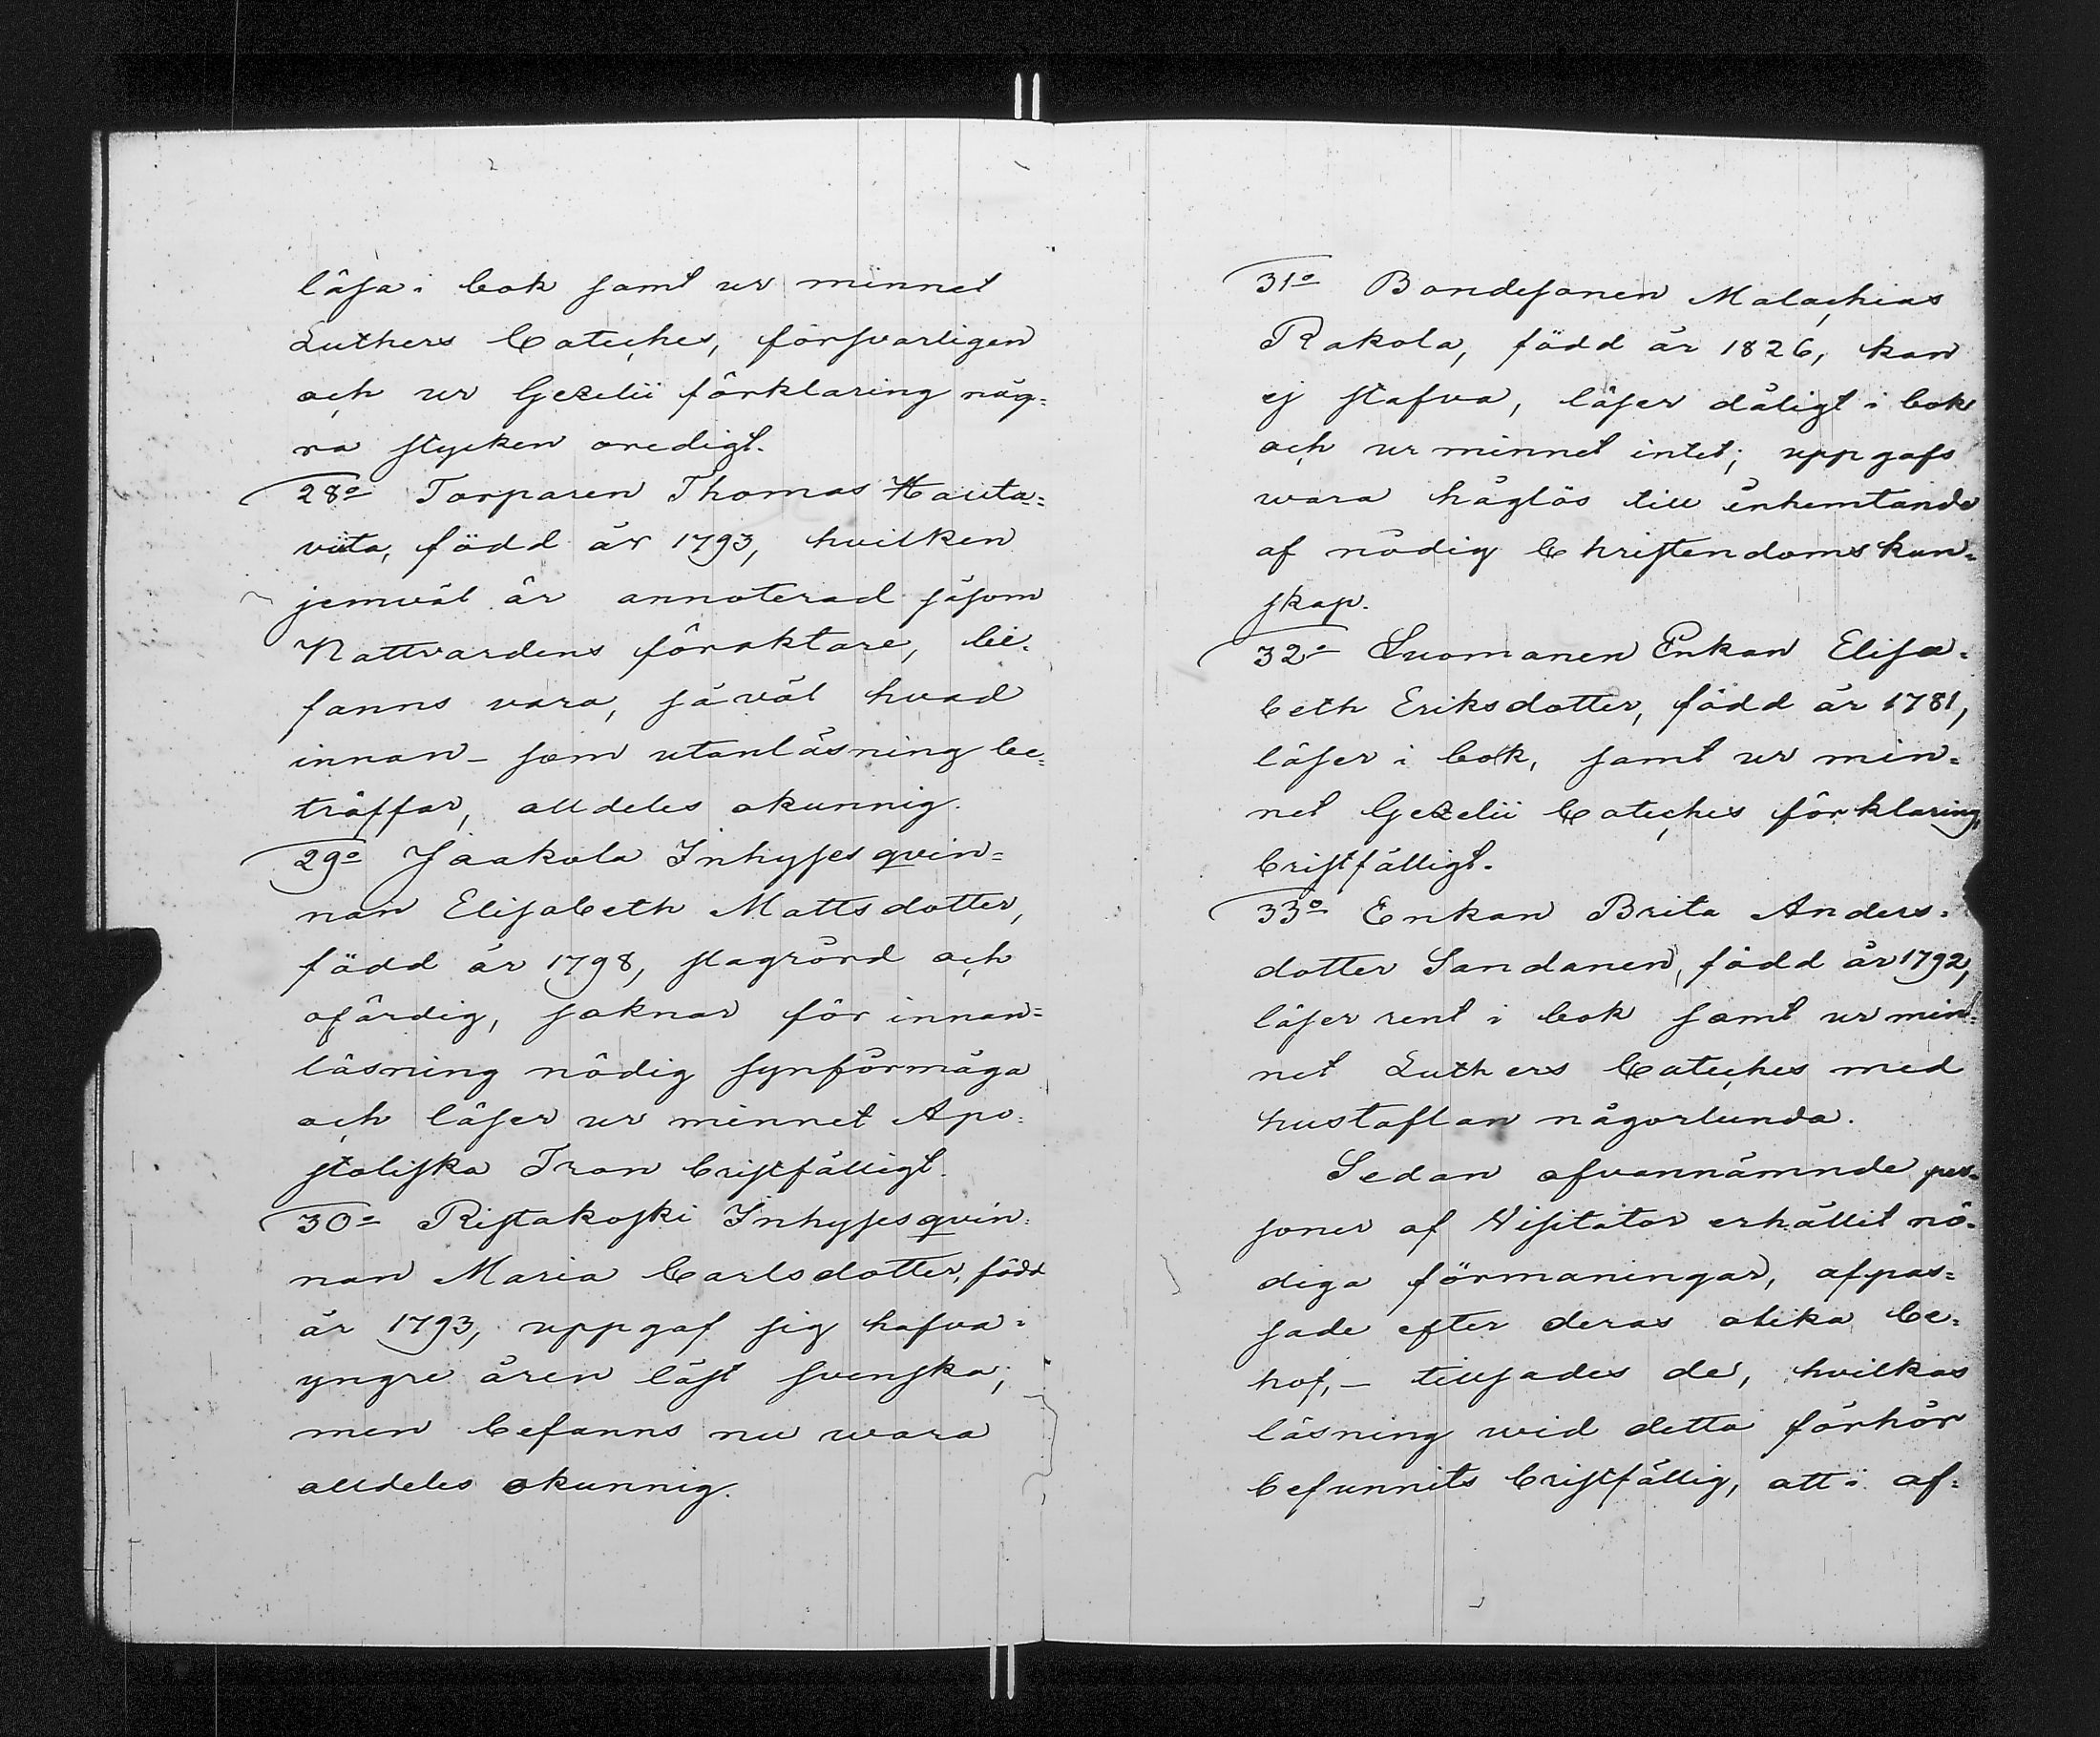 läsa i bok samt ur minnet
Luthers Cateches, försvarligen
och ur Gezelii förklaring någ=
ra stycken oredigt.
28o Torparen Thomas Hauta=
viita, född år 1793, hvilken
jemväl är annoterad såsom
Nattvardens föraktare, be=
fanns vara, så väl hvad
innan- som utanläsning be=
träffar, alldeles okunnig.
29o Jaakola Inhyses qvin=
nan Elisabeth Mattsdotter,
född år 1798, slagrörd och
ofärdig, saknar för innan=
läsning nödig synförmåga
och läser ur minnet Apo=
stoliska Tron bristfälligt.
30o Ristakoski Inhyses qvin=
nan Maria Carlsdotter, född
år 1793, uppgaf sig hafva i
yngre åren läst svenska,
men befanns nu wara
alldeles okunnig.
31o Bondesonen Malachias
Rakola, född år 1826, kan
ej stafva, läser dåligt i bok
och ur minnet intet; uppgafs
wara håglös till inhemtande
af nödig Christendomskun=
skap.
32o Luomanen Enkan Elisa=
beth Eriksdotter, född år 1781,
läser i bok, samt ur min=
net Gezelii Cateches förklaring,
bristfälligt.
33o Enkan Brita Anders=
dotter Sandanen, född år 1792,
läser rent i bok samt ur min=
net Luthers Cateches med
hustaflan någorlunda.
Sedan ofvannämnde per=
soner af Visitator erhållit nö=
diga förmaningar, afpas=
sade efter deras olika be=
hof, - tillsades de, hvilkas
läsning wid detta förhör
befunnits bristfällig, att i af=